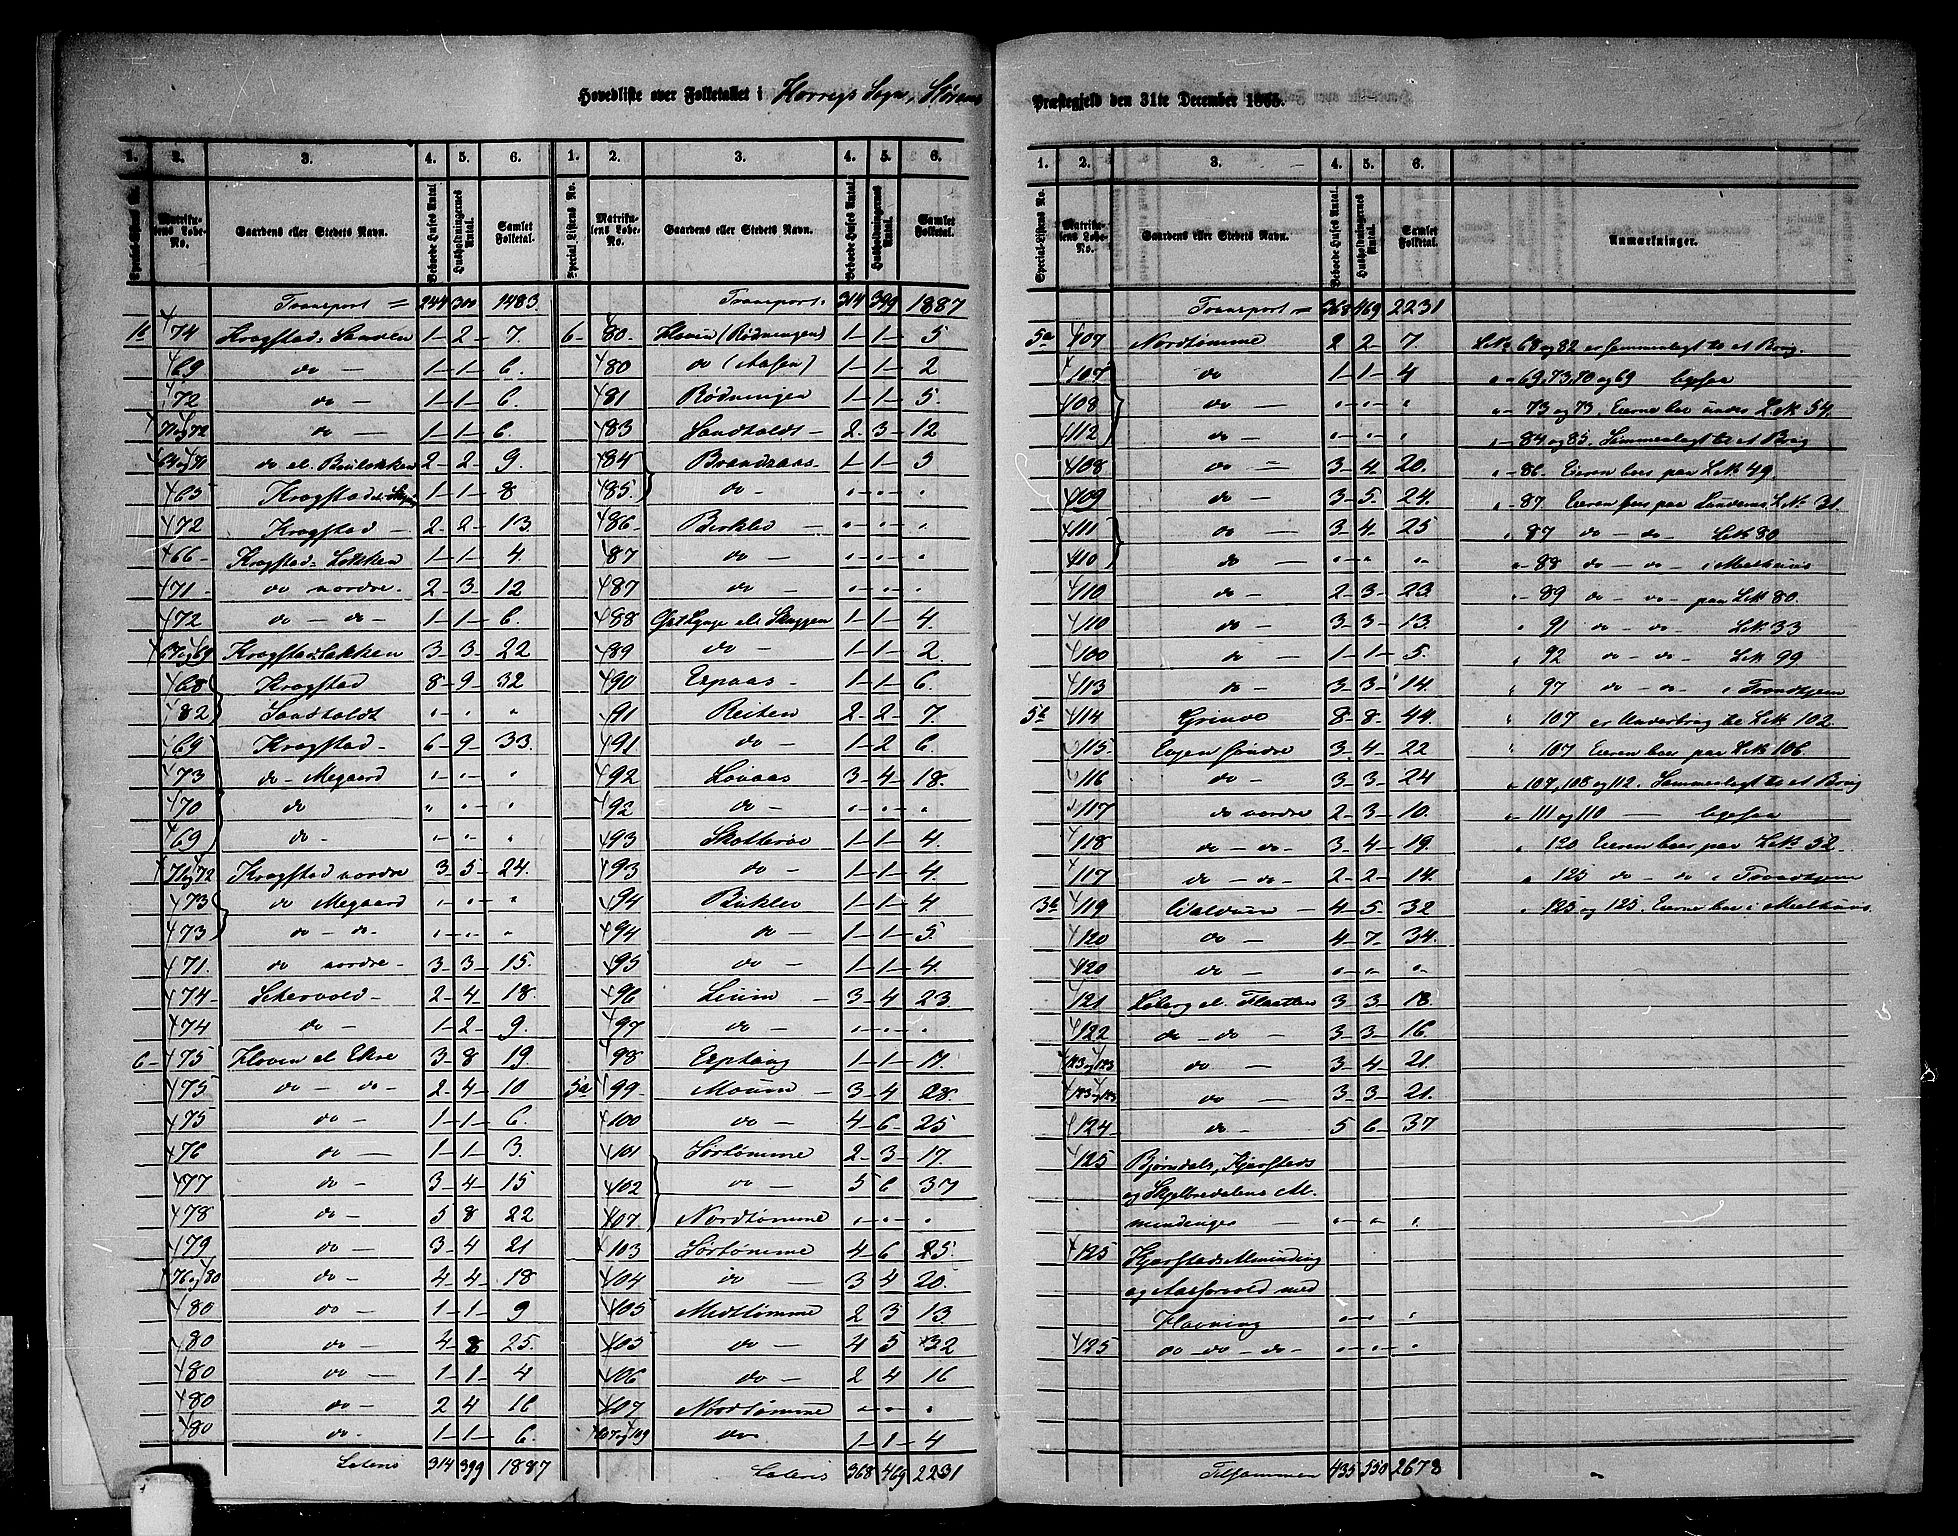 Hovedliste over Folketallet i Horregs Sogn, Størens Præstegjeld den 31te December 1865.
1. 2. 3. 4. 5. 6. 1. 2. 3. 4. 5. 6.
Special-Listens No. Matrikulens Løbe-No. Gaardens eller Stedets Navn. Beboede Huses Antal. Husholdningernes Antal. Samlet Folketal. Special-Listens No. Matrikulens Løbe-No. Gaardens eller Stedets Navn. Beboede Huses Antal. Husholdningernes Antal. Samlet Folketal.
Transport = 244 310 1483. Transport. 314 399 1887
74 Kragstad, Sanden 1 - 2 - 7. 6 - 80. Hovin (Rødningen) 1 - 1 - 5
69 do - 1 - 1 - 6. 80 do (Aasen) 1 - 1 - 2
72 do - 1 - 1 - 6. 81 Rødningen 1 - 1 - 5.
71 og 72 do - 1 - 1 - 6. 83 Sandholdt - 2 - 3 - 12
do el. 2 - 2 - 9. 84 Brandraas 1 - 1 - 5
65 Kragstad 1 - 1 - 8 85 do - " - " - "
72 Kragstad - 2 - 2 - 13. 86 - " - " - "
66 Kragstad, Løkken 1 - 1 - 4. 87 do - " - " - "
71. do nordre. 2 - 3 - 12 87 do - " - " - "
72 do - do - 1 - 1 - 6. 88 1 - 1 - 4.
67 og 69 Kragstadløkken 3 - 3 - 22 89 do - 1 - 1 - 2.
68 Kragstad 8 - 9 - 32 90 Espaas - 1 - 1 - 6.
82 Sandholdt " - " - " 91 Reiten 2 - 2 - 7.
69 Kragstad - 6 - 9 - 33. 91 do - 1 - 2 6.
73 do - Megaard " - " - " 92 Løvaas 3 - 4 - 18.
70 do " " - " 92 do - " - " - "
69 do - " - " - " 93 1 - 1 - 4.
71 og 72 Kragstad nordre 3 - 5 - 24. 93 do - 1 - 1 - 4.
73 do Megaard " - " - " 94 1 - 1 - 4
73 do - do - " - " - " 94 do - 1 - 1 - 5.
71. do nordre - 3 - 3 - 15. 95 do - 1 - 1 - 4.
74 - 2 - 4 - 18. 96 - 3 - 4 23.
74 do - 1 - 2 - 9. 97 do - " - " - "
6 - 75 Hovin el Ekre 3 - 8 - 19. 98 1 - 1 - 11.
75 do - do - 2 - 4 - 10 5a 99 3 - 4 - 28.
75 do - 1 - 1 - 6. 100 do - 4 - 6 - 25
76 do - 1 - 1 - 3. 101 Sørtømme 2 - 3 - 17.
77 do - 3 - 4 - 15 102 do - 5 6 - 37
78 do - 5 8 - 22 107 Nordtømme " - " - "
79 do - 3 - 4 - 21 103 Sørtømme 4 - 6 25.
76 og 80 do - 4 - 4 - 18 104 do - 3 4 - 20.
80 do - 1 - 1 - 9 105 Midttømme 2 3 - 13.
80 do - 4 - 8 - 25. 105 do - 4 5 - 32
80 do - 1 - 1 - 4 106 do - 2 4 - 16
80 do - 2 4 - 16 107 Nordtømme " - " - "
80 do - 1 - 1 - 6. 107 og 109 do 1 - 1 - 4
Lateris 314 399 1887 Lateris 368 469 2231
1. 2. 3. 4. 5. 6.
Special-Listens No. Matrikulens Løbe-No. Gaardens eller Stedets Navn. Beboede Huses Antal. Husholdningernes Antal. Samlet Folketal. Anmærkninger.
Transport = 368 469 2231
5a 107 Nordtømme 2 2 - 7. L.No 68 og 82 er sammenlagt til et Brug.
107 do 1 - 1 - 4 " - 69, 73, 70 og 69 ligesaa
108 do - " - " - " " - 73 og 73. Eierne boe under L.No 54.
112 do - " - " - " " - 84 og 85. Sammenlagt til et Brug
108 do - 3 - 4 - 20. " - 86. Eieren boer paa L.No 49.
109 do - 3 - 5 - 24. " - 87. Eieren boer paa Lundems L.No 31.
111 do - 3 - 4 - 25 " 87 do - do - L.No 80.
110 do - " - " " " - 88 do - do - i Meelhuus
110 do - 2 - 3 - 23 " - 89 do - do - paa L.No 80.
110 do - 3 - 3 - 13. " 91 do - do - L.No 33
100 do - 1 - 1 - 5. " 92 do - do - L.No 99
113 do - 3 - 3 - 14. " 97 do - do - i Trondhjem
5b 114 Grinde 8 - 8 - 44. " 107 er Underbrug til L.No 102.
115. Evjen søndre 3 - 4 - 22 " 107 Eieren boer paa L.No 106.
116 do - 3 - 3 - 24 " 107, 108 og 112. Sammenlagt til et Brug
117 do nordre 2 - 3 - 10. " - 111 og 110 - ligesaa
118 do - do - 3 - 4 - 19. " 120 Eieren boer paa L.No 32.
117 do - do - 2 - 2 - 14. " 125 do - do i Trondhjem
3b 119 Valdum - 4 - 5 - 32 " 125 og 125. Eierne boe i Meelhuus.
120 do - 4 - 7 - 34.
120 do - " - " - "
121 Løberg el. Flaatten 3 - 3 - 18.
122 do - do - 3 - 3 - 16.
123 og 123 do - 3 - 4 - 21.
123 og 123 do - 3 - 3 - 21.
124 - do - 5 6 - 37
125 Bjørndals, Kjærstads
og Skjelbredalens Al-
mindinger - " - " - "
125 Kjærstads Alminding
og Aasforvold med
Flaaning " - " - "
125 do - do - do - " - " - "
Tilsammen 435 550 2678